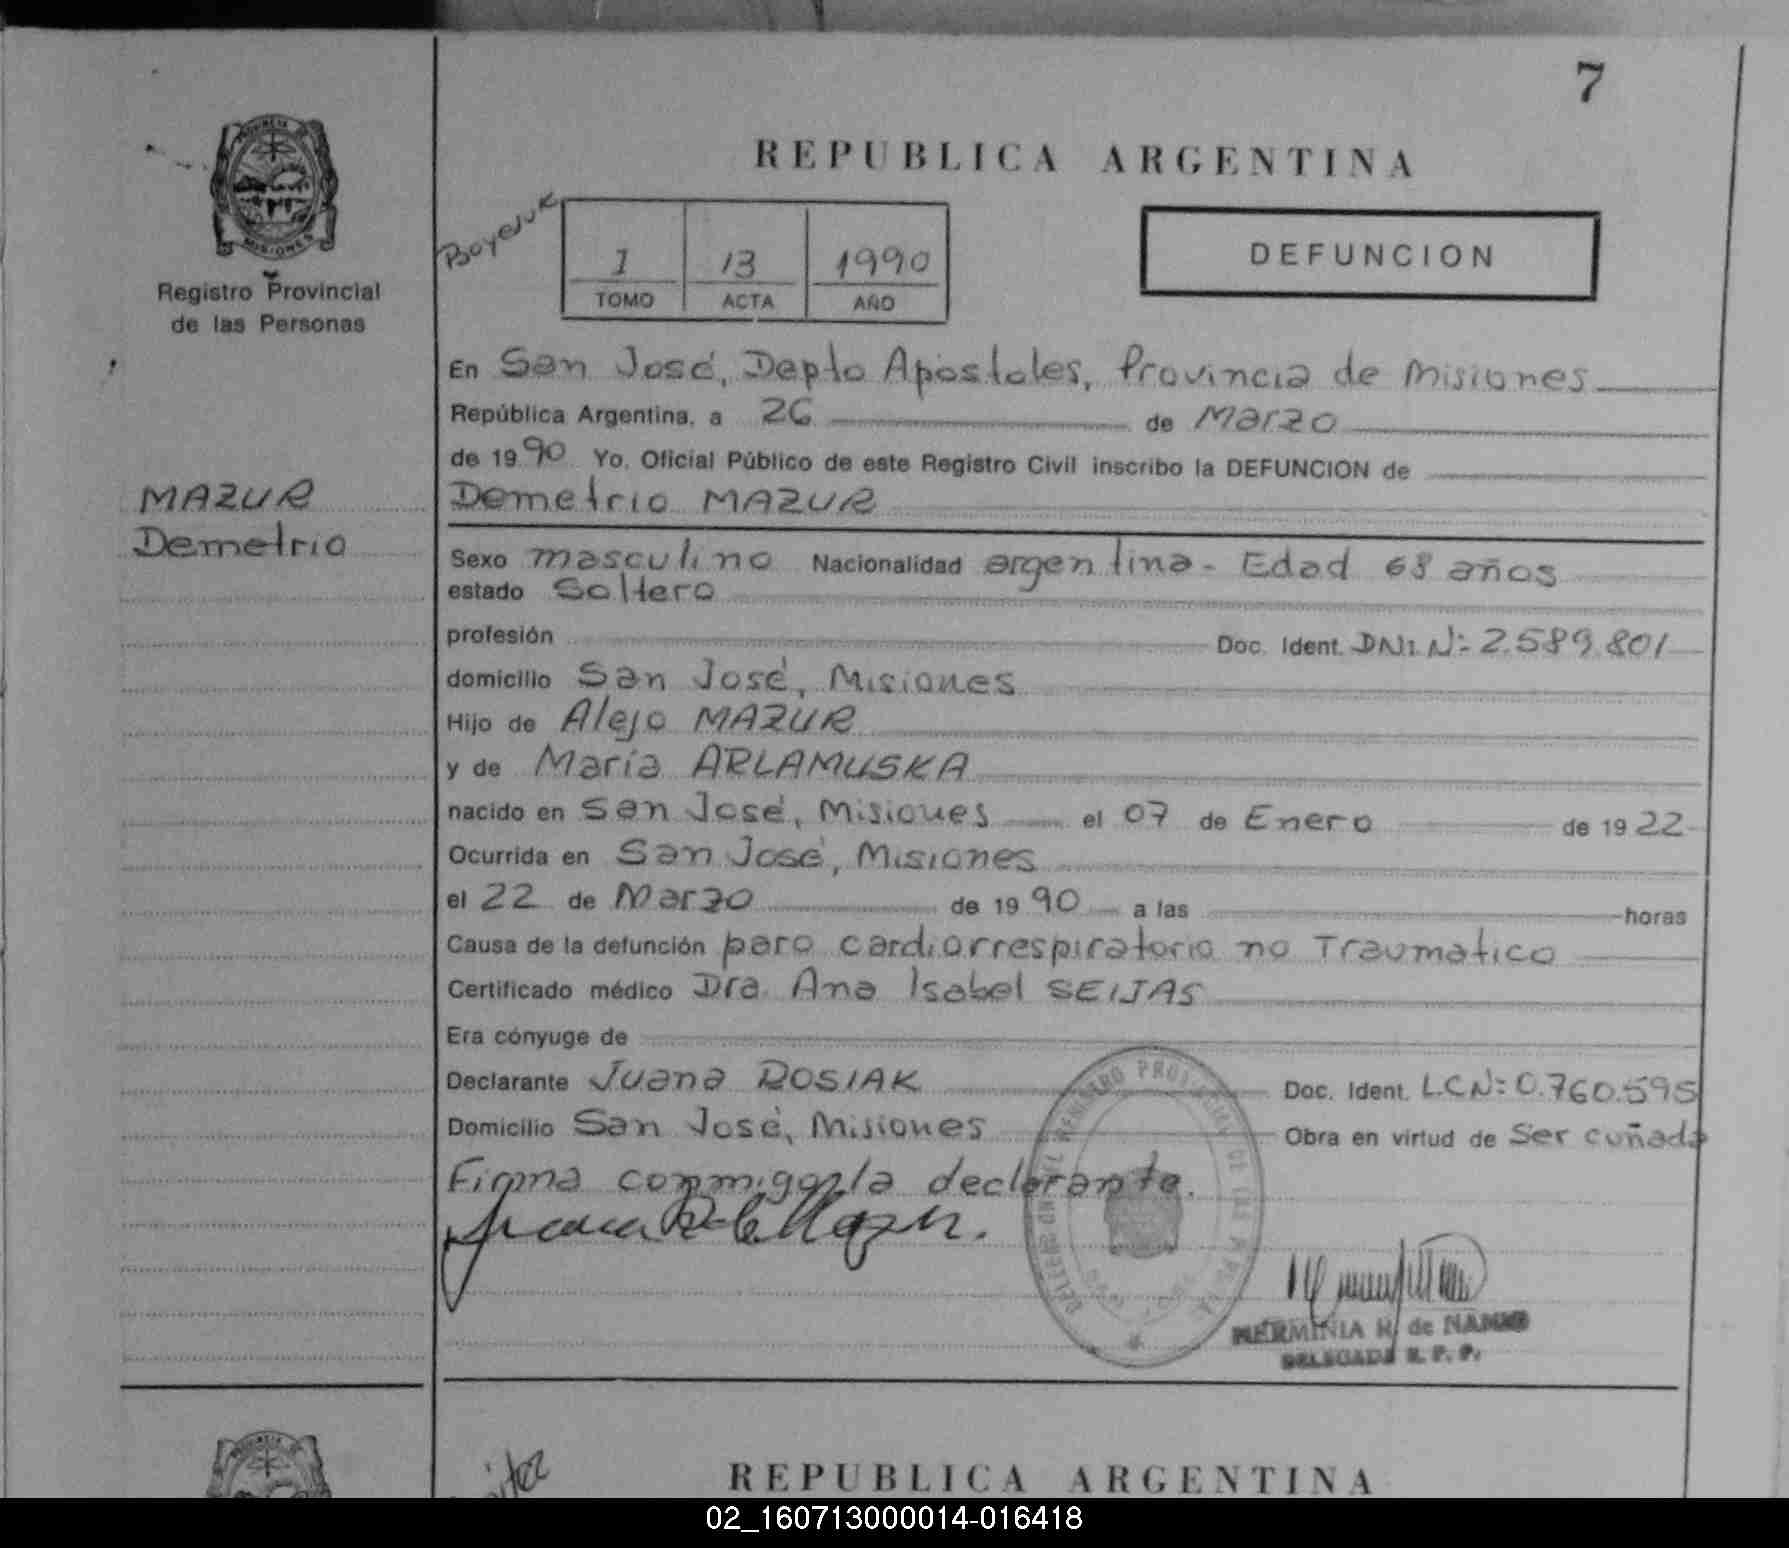 7
PROVINCIA DE
MISIONES
Registro Provincial
de las Personas
REPUBLICA ARGENTINA
1 13 1990
TOMO ACTA AÑO
DEFUNCION
En San José, Depto Apóstoles, Provincia de Misiones
República Argentina, a 26 de Marzo
de 1990 Yo, Oficial Público de este Registro Civil inscribo la DEFUNCION de
MAZUR
Demetrio
Demetrio MAZUR
Sexo masculino Nacionalidad argentina - Edad 68 años
estado Soltero
profesión Doc. Ident. DNI N: 2.589.801
domicilio San José, Misiones
Hijo de Alejo MAZUR
y de María ARLAMUSKA
nacido en San José, Misiones el 07 de Enero de 1922
Ocurrida en San José, Misiones
el 22 de Marzo de 1990 a las horas
Causa de la defunción paro cardiorrespiratorio no Traumatico
Certificado médico Dra. Ana Isabel SEIJAS
Era cónyuge de
Declarante Juana ROSIAK Doc. Ident. L.C N: 0.760.595
Domicilio San José, Misiones Obra en virtud de Ser cuñada
Firma conmigo, la declarante.
HERMINIA R. de
DELEGADA R. P. P.
REPUBLICA ARGENTINA
02_160713000014-016418